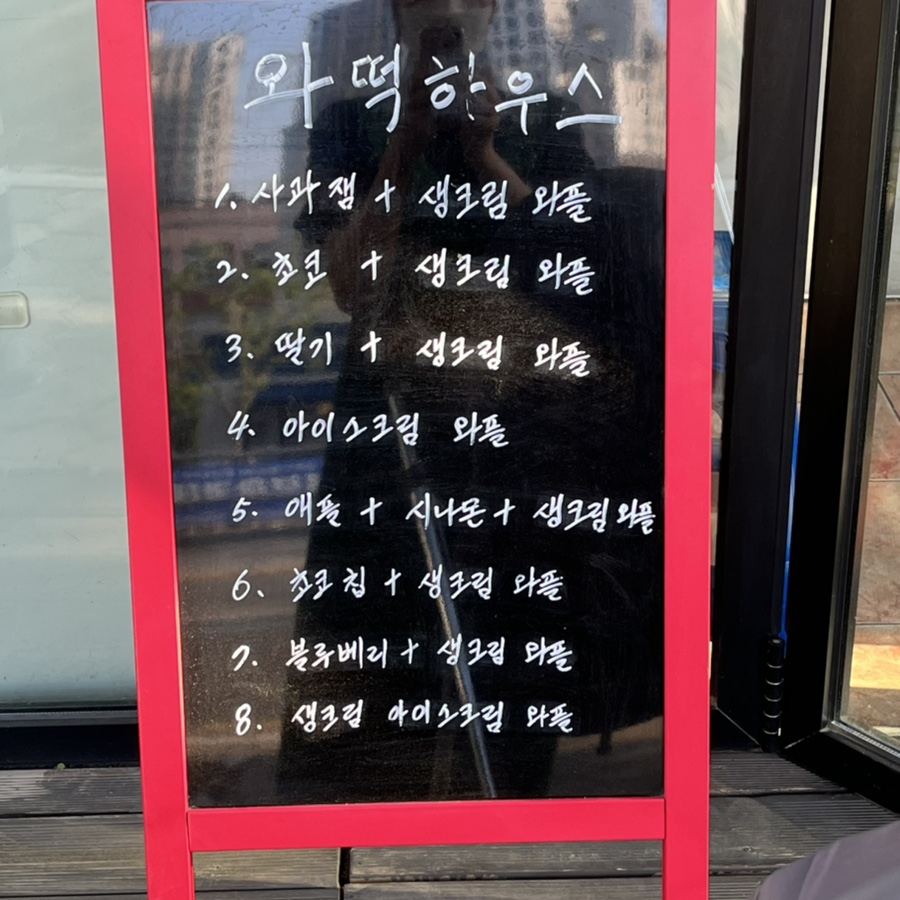 와떡하우스
1. 사과잼 + 생크림 와플
2. 쵸코 + 생크림 와플
3. 딸기 + 생크림 와플
4. 아이스크림 와플
5. 애플 + 시나몬 + 생크림 와플
6. 쵸코칩 + 생크림 와플
7. 블루베리 + 생크림 와플
8. 생크림 아이스크림 와플